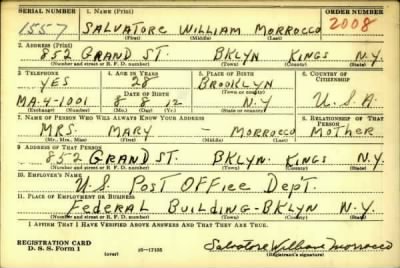 SERIAL NUMBER 1. NAME (Print) ORDER NUMBER
1557 SALVATORE WILLIAM MORROCCO 2008
(First) (Middle) (Last)
2. ADDRESS (Print)
852 GRAND ST. BKLYN KINGS N.Y.
(Number and street or R. F. D. number) (Town) (County) (State)
3. TELEPHONE 4. AGE IN YEARS 5. PLACE OF BIRTH 6. COUNTRY OF CITIZENSHIP
YES 28 BROOKLYN
DATE OF BIRTH (Town or county)
MA-4-1001 8 8 12 N.Y U.S.A.
(Exchange) (No.) (Mo.) (Day) (Yr.) (State or country)
7. NAME OF PERSON WHO WILL ALWAYS KNOW YOUR ADDRESS 8. RELATIONSHIP OF THAT PERSON
MRS. MARY - MORROCCO MOTHER
(Mr., Mrs., Miss) (First) (Middle) (Last)
9. ADDRESS OF THAT PERSON
852 GRAND ST. BKLYN. KINGS N.Y.
(Number and street or R. F. D. number) (Town) (County) (State)
10. EMPLOYER'S NAME
U.S. POST OFFICE DEPT.
11. PLACE OF EMPLOYMENT OR BUSINESS
FEDERAL BUILDING-BKLYN N.Y.
(Number and street or R. F. D. number) (Town) (County) (State)
I AFFIRM THAT I HAVE VERIFIED ABOVE ANSWERS AND THAT THEY ARE TRUE.
REGISTRATION CARD
D. S. S. Form 1 (over) 16-17105 Salvatore William Morrocco
(Registrant's signature)